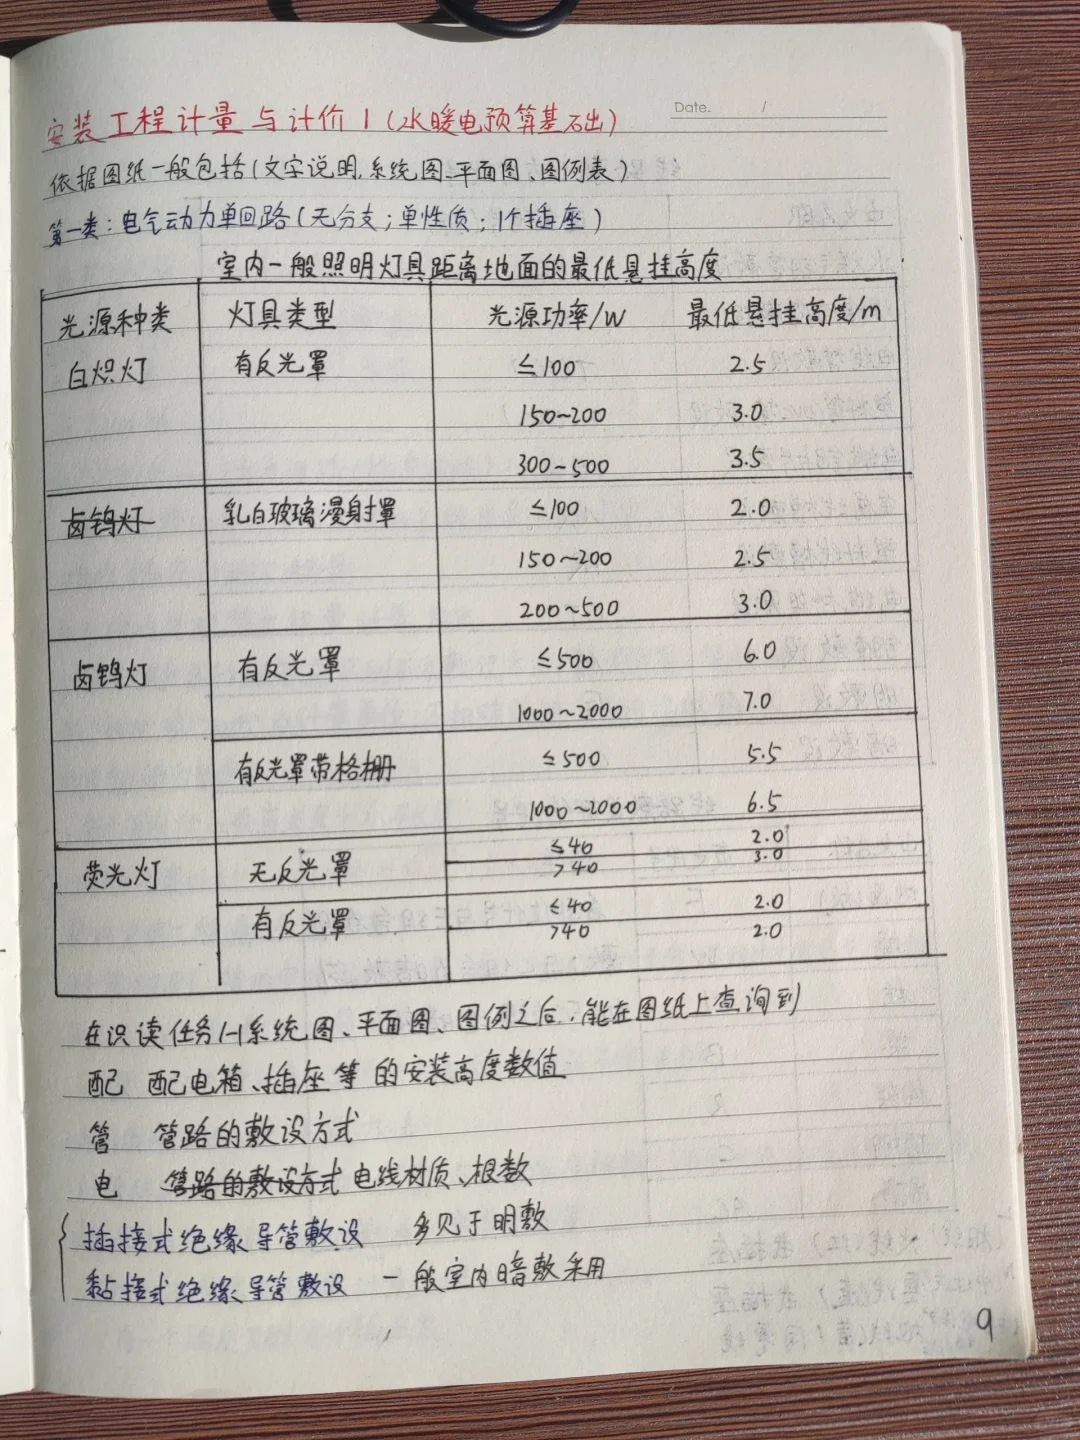 Date. /
安装工程计量与计价1(水暖电预算基础)
依据图纸一般包括(文字说明、系统图、平面图、图例表)
第一类:电气动力单回路(无分支;单性质;1个插座)
室内一般照明灯具距离地面的最低悬挂高度
光源种类 灯具类型 光源功率/W 最低悬挂高度/m
白炽灯 有反光罩 ≤100 2.5
150~200 3.0
300~500 3.5
卤钨灯 乳白玻璃漫射罩 ≤100 2.0
150~200 2.5
200~500 3.0
卤钨灯 有反光罩 ≤500 6.0
1000~2000 7.0
有反光罩带格栅 ≤500 5.5
1000~2000 6.5
荧光灯 无反光罩 ≤40 2.0
>40 3.0
有反光罩 ≤40 2.0
>40 2.0
在识读任务1-1系统图、平面图、图例之后,能在图纸上查询到
配 配电箱、插座等的安装高度数值
管 管路的敷设方式
电 管路的敷设方式 电线材质、根数
插接式绝缘导管敷设 多见于明敷
黏接式绝缘导管敷设 一般室内暗敷采用
9